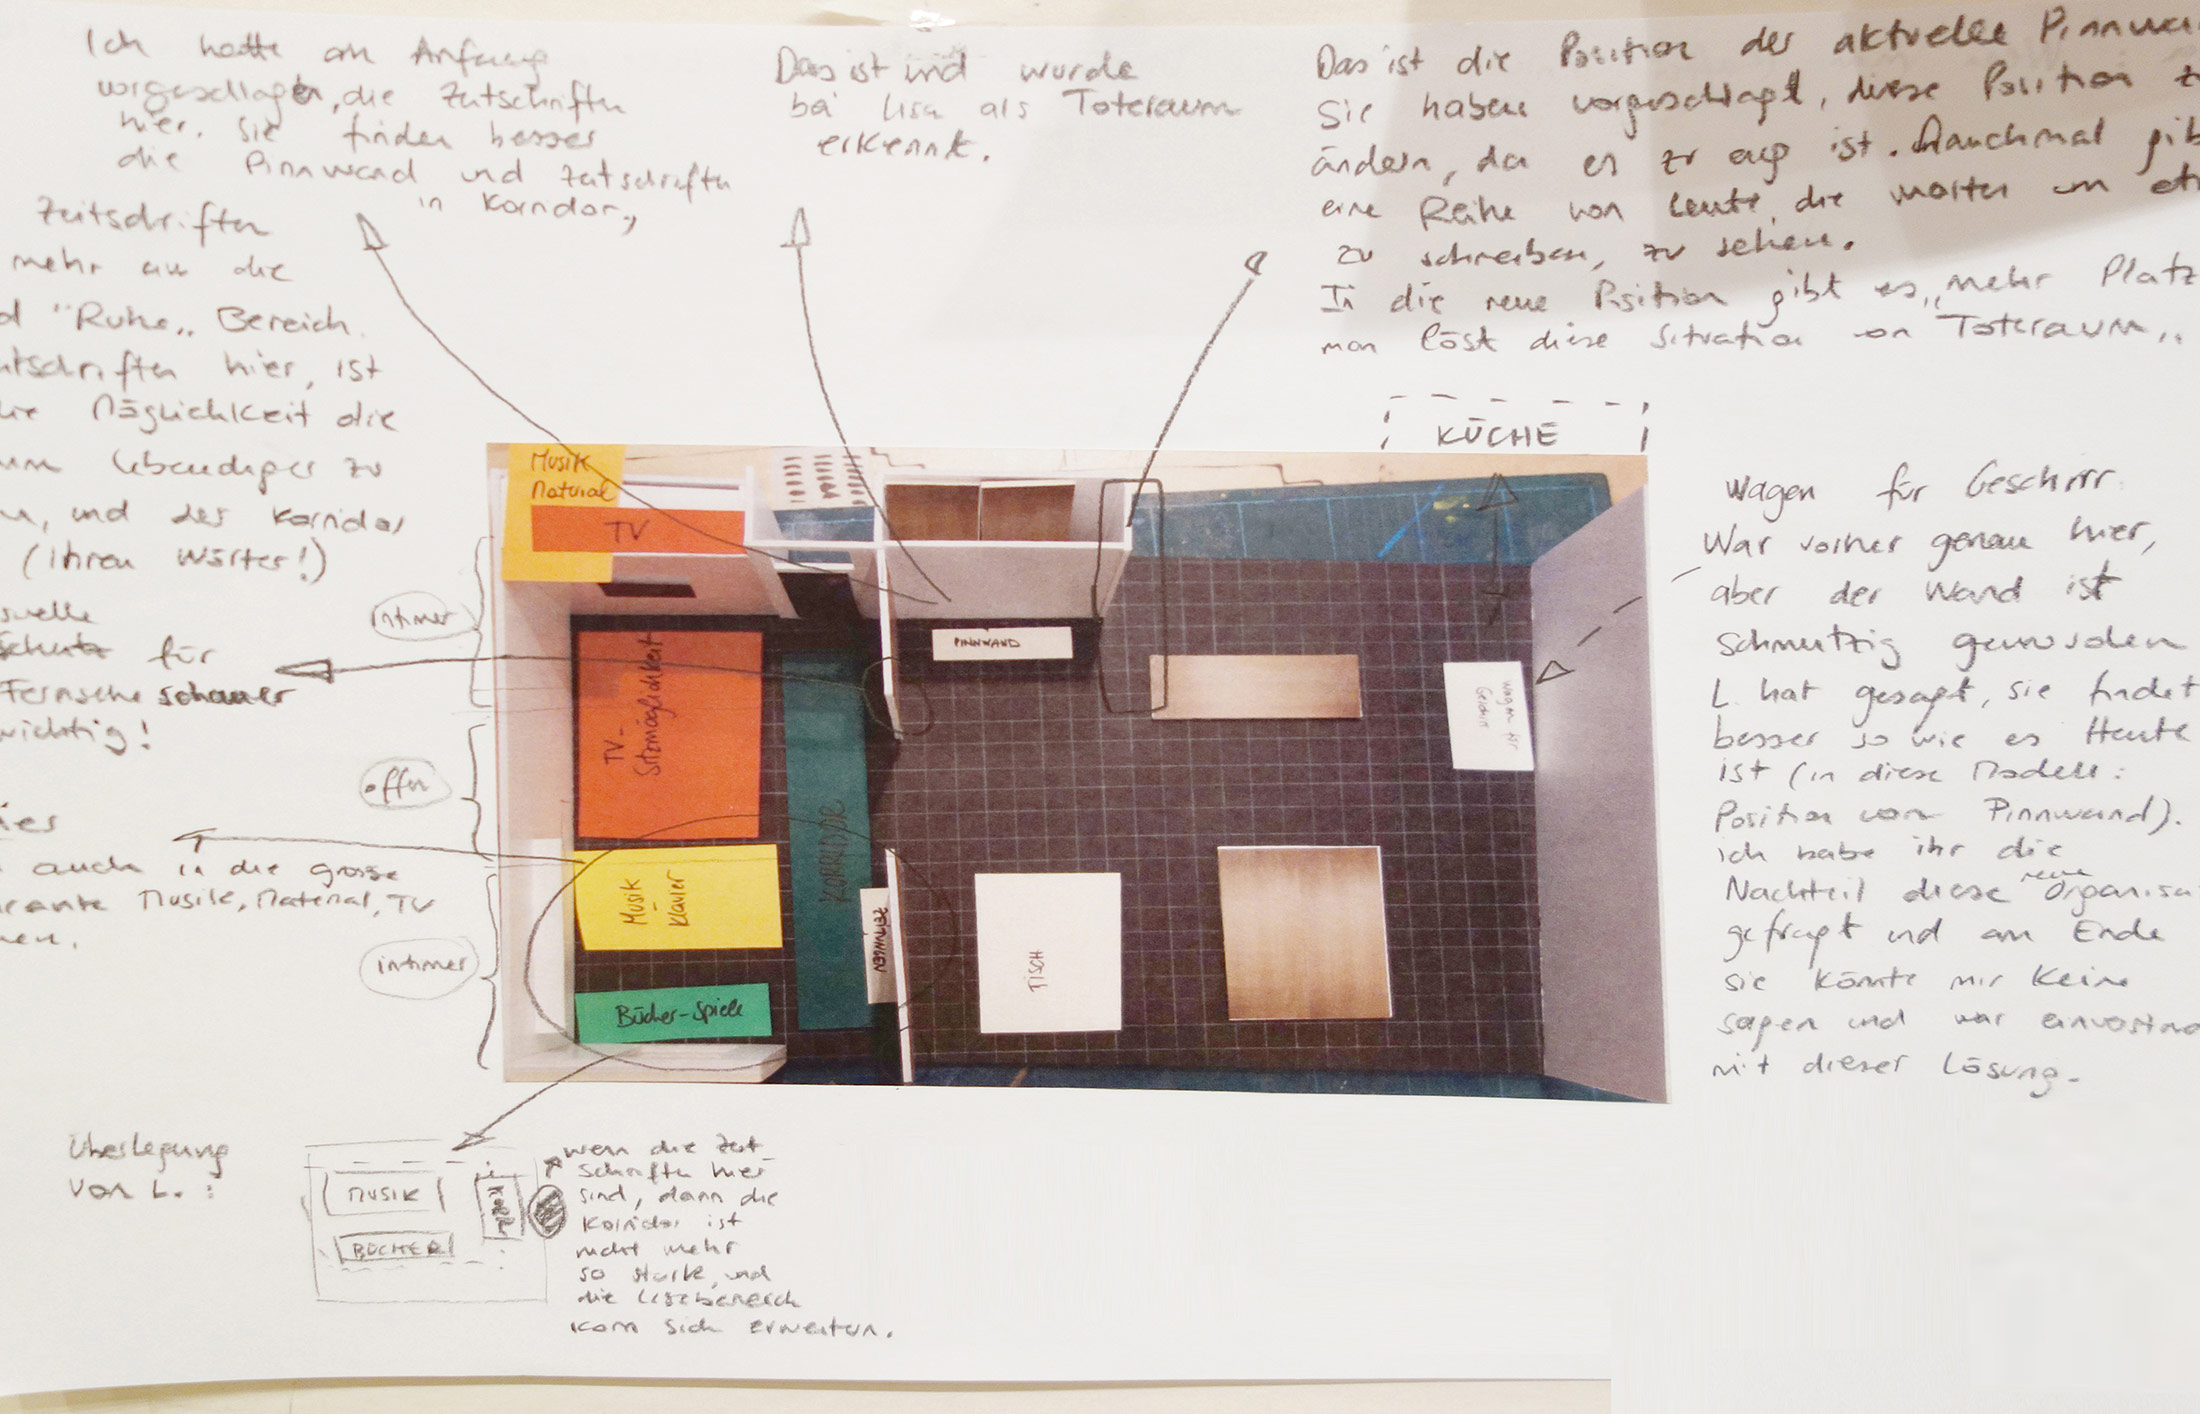 Ich hatte am Anfang
vorgeschlagen, die Zeitschriften
hier. Sie finden besser
die Pinnwand und Zeitschriften
in Korridor„
Das ist und wurde
bei Lisa als Toteraum
erkennt.
Das ist die Position der aktuelle
Sie haben vorgeschlagt, diese Position
ändern, da es zu eng ist. Manchmal
eine Reihe von Leute, die warten um
zu schreiben, zu sehen.
In die neue Position gibt es „mehr Platz
man löst diese Situation von Toteraum„
Zeitschriften
mehr an die
"Ruhe„ Bereich.
hier, ist
Möglichkeit die
lebendiger zu
und der Korridor
(ihren Wörter!)
für
wichtig!
auch in die grosse
Musik, Material, TV
intimer
offen
intimer
KÜCHE
Musik
Material
TV
TV-
Sitzmöglichkeit
Musik
-
Klavier
Bücher-Spiele
KORRIDOR
ZEITUNGEN
PINNWAND
TISCH
Wagen für
Geschirr
Wagen für Geschirr
War vorher genau hier,
aber der Wand ist
schmutzig geworden
L. hat gesagt, sie findet
besser so wie es Heute
ist (in diese Modell:
Position von Pinnwand).
Ich habe ihr die
neue
Nachteil diese
gefragt und am Ende
sie könnte mir keine
sagen und war
mit dieser Lösung.
Überlegung
von L. :
MUSIK
BÜCHER
KORR
wenn die Zeit-
schriften hier
sind, dann die
Korridor ist
nicht mehr
so stark, und
die Lesebereich
kann sich erweitern.